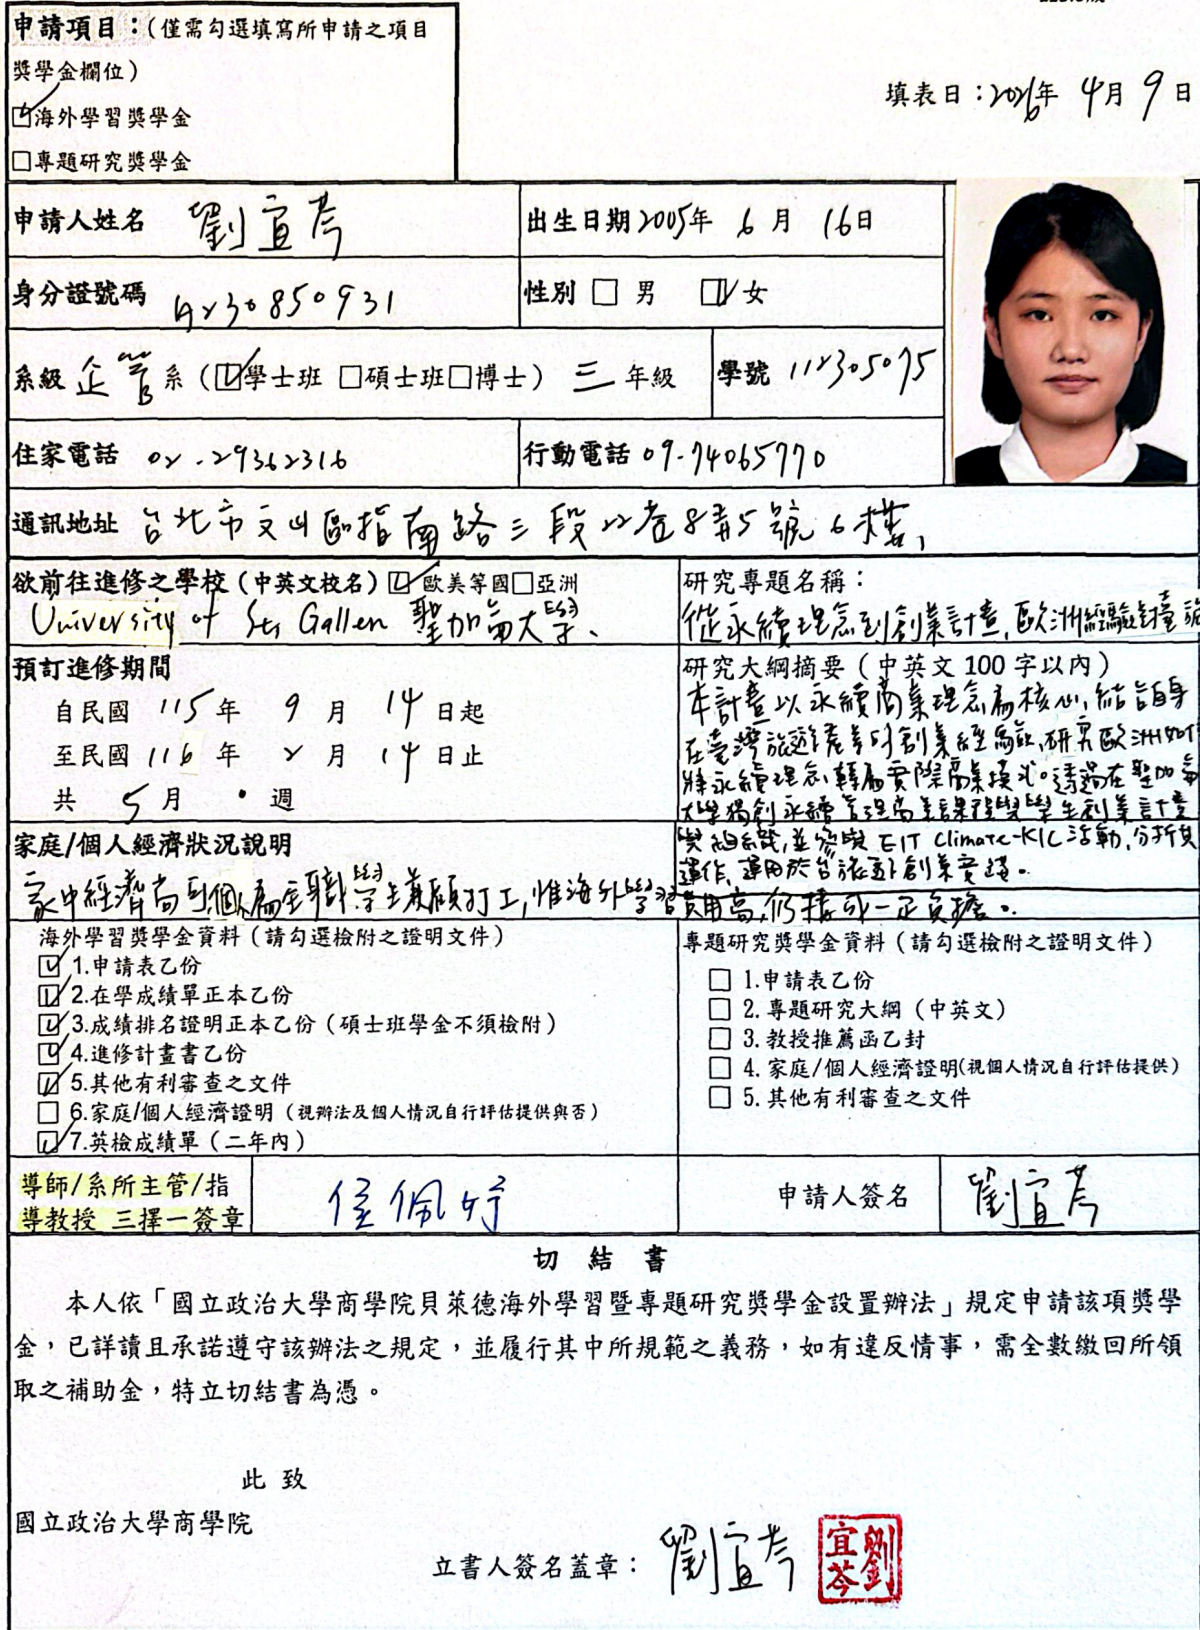 申請項目：(僅需勾選填寫所申請之項目
獎學金欄位)
☑海外學習獎學金
□專題研究獎學金
填表日：2026年 4月 9日
申請人姓名 劉宜芩
出生日期2005年 6月 16日
身分證號碼 A230850931
性別 □ 男 ☑女
系級 企管系（☑學士班 □碩士班□博士）三 年級
學號 112305075
住家電話 02-29362316
行動電話 09-74065770
通訊地址 台北市文山區指南路三段22巷8弄5號6樓
欲前往進修之學校（中英文校名）☑歐美等國□亞洲
University of St. Gallen 聖加侖大學、
研究專題名稱：
從永續理念到創業計畫，歐洲經驗對臺
預訂進修期間
自民國 115年 9月 14日起
至民國 116年 2月 14日止
共 5月 · 週
研究大綱摘要（中英文 100 字以內）
本計畫以永續商業理念為核心，結合自身
在臺灣旅遊產業的創業經驗，研究歐洲如何
將永續理念轉為實際商業模式。透過在聖加侖
大學獨創永續管理商業課程與學生創業計畫
與組織，並參與 EIT Climate-KIC 活動，分析其
運作，運用於台旅遊創業實踐。
家庭/個人經濟狀況說明
家中經濟尚可，個人為全職學生兼顧打工，惟海外學習費用高，仍構成一定負擔。
海外學習獎學金資料（請勾選檢附之證明文件）
☑ 1.申請表乙份
☑ 2.在學成績單正本乙份
☑ 3.成績排名證明正本乙份（碩士班學金不須檢附）
☑ 4.進修計畫書乙份
☑ 5.其他有利審查之文件
□ 6.家庭/個人經濟證明（視辦法及個人情況自行評估提供與否）
☑ 7.英檢成績單（二年內）
專題研究獎學金資料（請勾選檢附之證明文件）
□ 1.申請表乙份
□ 2.專題研究大綱（中英文）
□ 3.教授推薦函乙封
□ 4.家庭/個人經濟證明(視個人情況自行評估提供)
□ 5.其他有利審查之文件
導師/系所主管/指
導教授 三擇一簽章
佩妤
申請人簽名 劉宜芩
切 結 書
本人依「國立政治大學商學院貝萊德海外學習暨專題研究獎學金設置辦法」規定申請該項獎學
金，已詳讀且承諾遵守該辦法之規定，並履行其中所規範之義務，如有違反情事，需全數繳回所領
取之補助金，特立切結書為憑。
此 致
國立政治大學商學院
立書人簽名蓋章：劉宜芩
劉宜芩